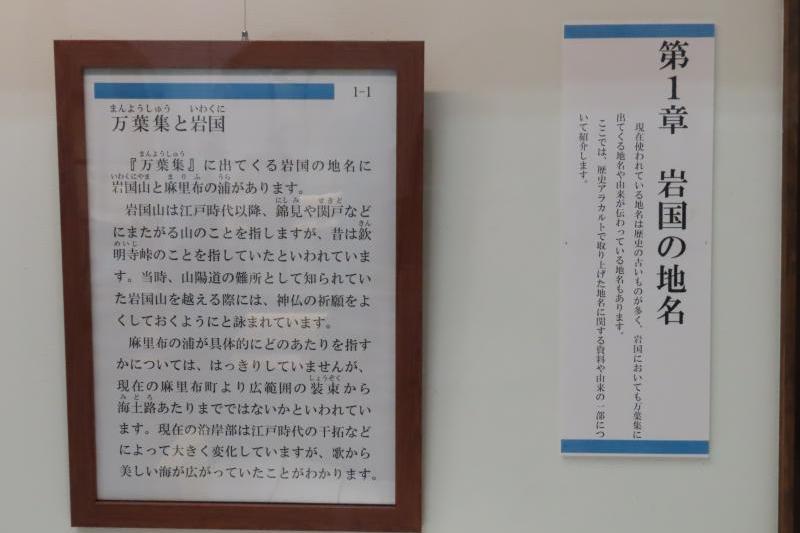 1-1
まんようしゅう いわくに
万葉集と岩国
まんようしゅう
『万葉集』に出てくる岩国の地名に
いわくにやま まりふ うら
岩国山と麻里布の浦があります。
にしみ せきど
岩国山は江戸時代以降、錦見や関戸など
きん
にまたがる山のことを指しますが、昔は欽
めいじ
明寺峠のことを指していたといわれていま
す。当時、山陽道の難所として知られてい
た岩国山を越える際には、神仏の祈願をよ
くしておくようにと詠まれています。
麻里布の浦が具体的にどのあたりを指す
かについては、はっきりしていませんが、
しょうぞく
現在の麻里布町より広範囲の装束から
みどろ
海土路あたりまでではないかといわれてい
ます。現在の沿岸部は江戸時代の干拓など
によって大きく変化していますが、歌から
美しい海が広がっていたことがわかります。
第1章 岩国の地名
現在使われている地名は歴史の古いものが多く、岩国においても万葉集に
出てくる地名や由来が伝わっている地名もあります。
ここでは、歴史アラカルトで取り上げた地名に関する資料や由来の一部につ
いて紹介します。